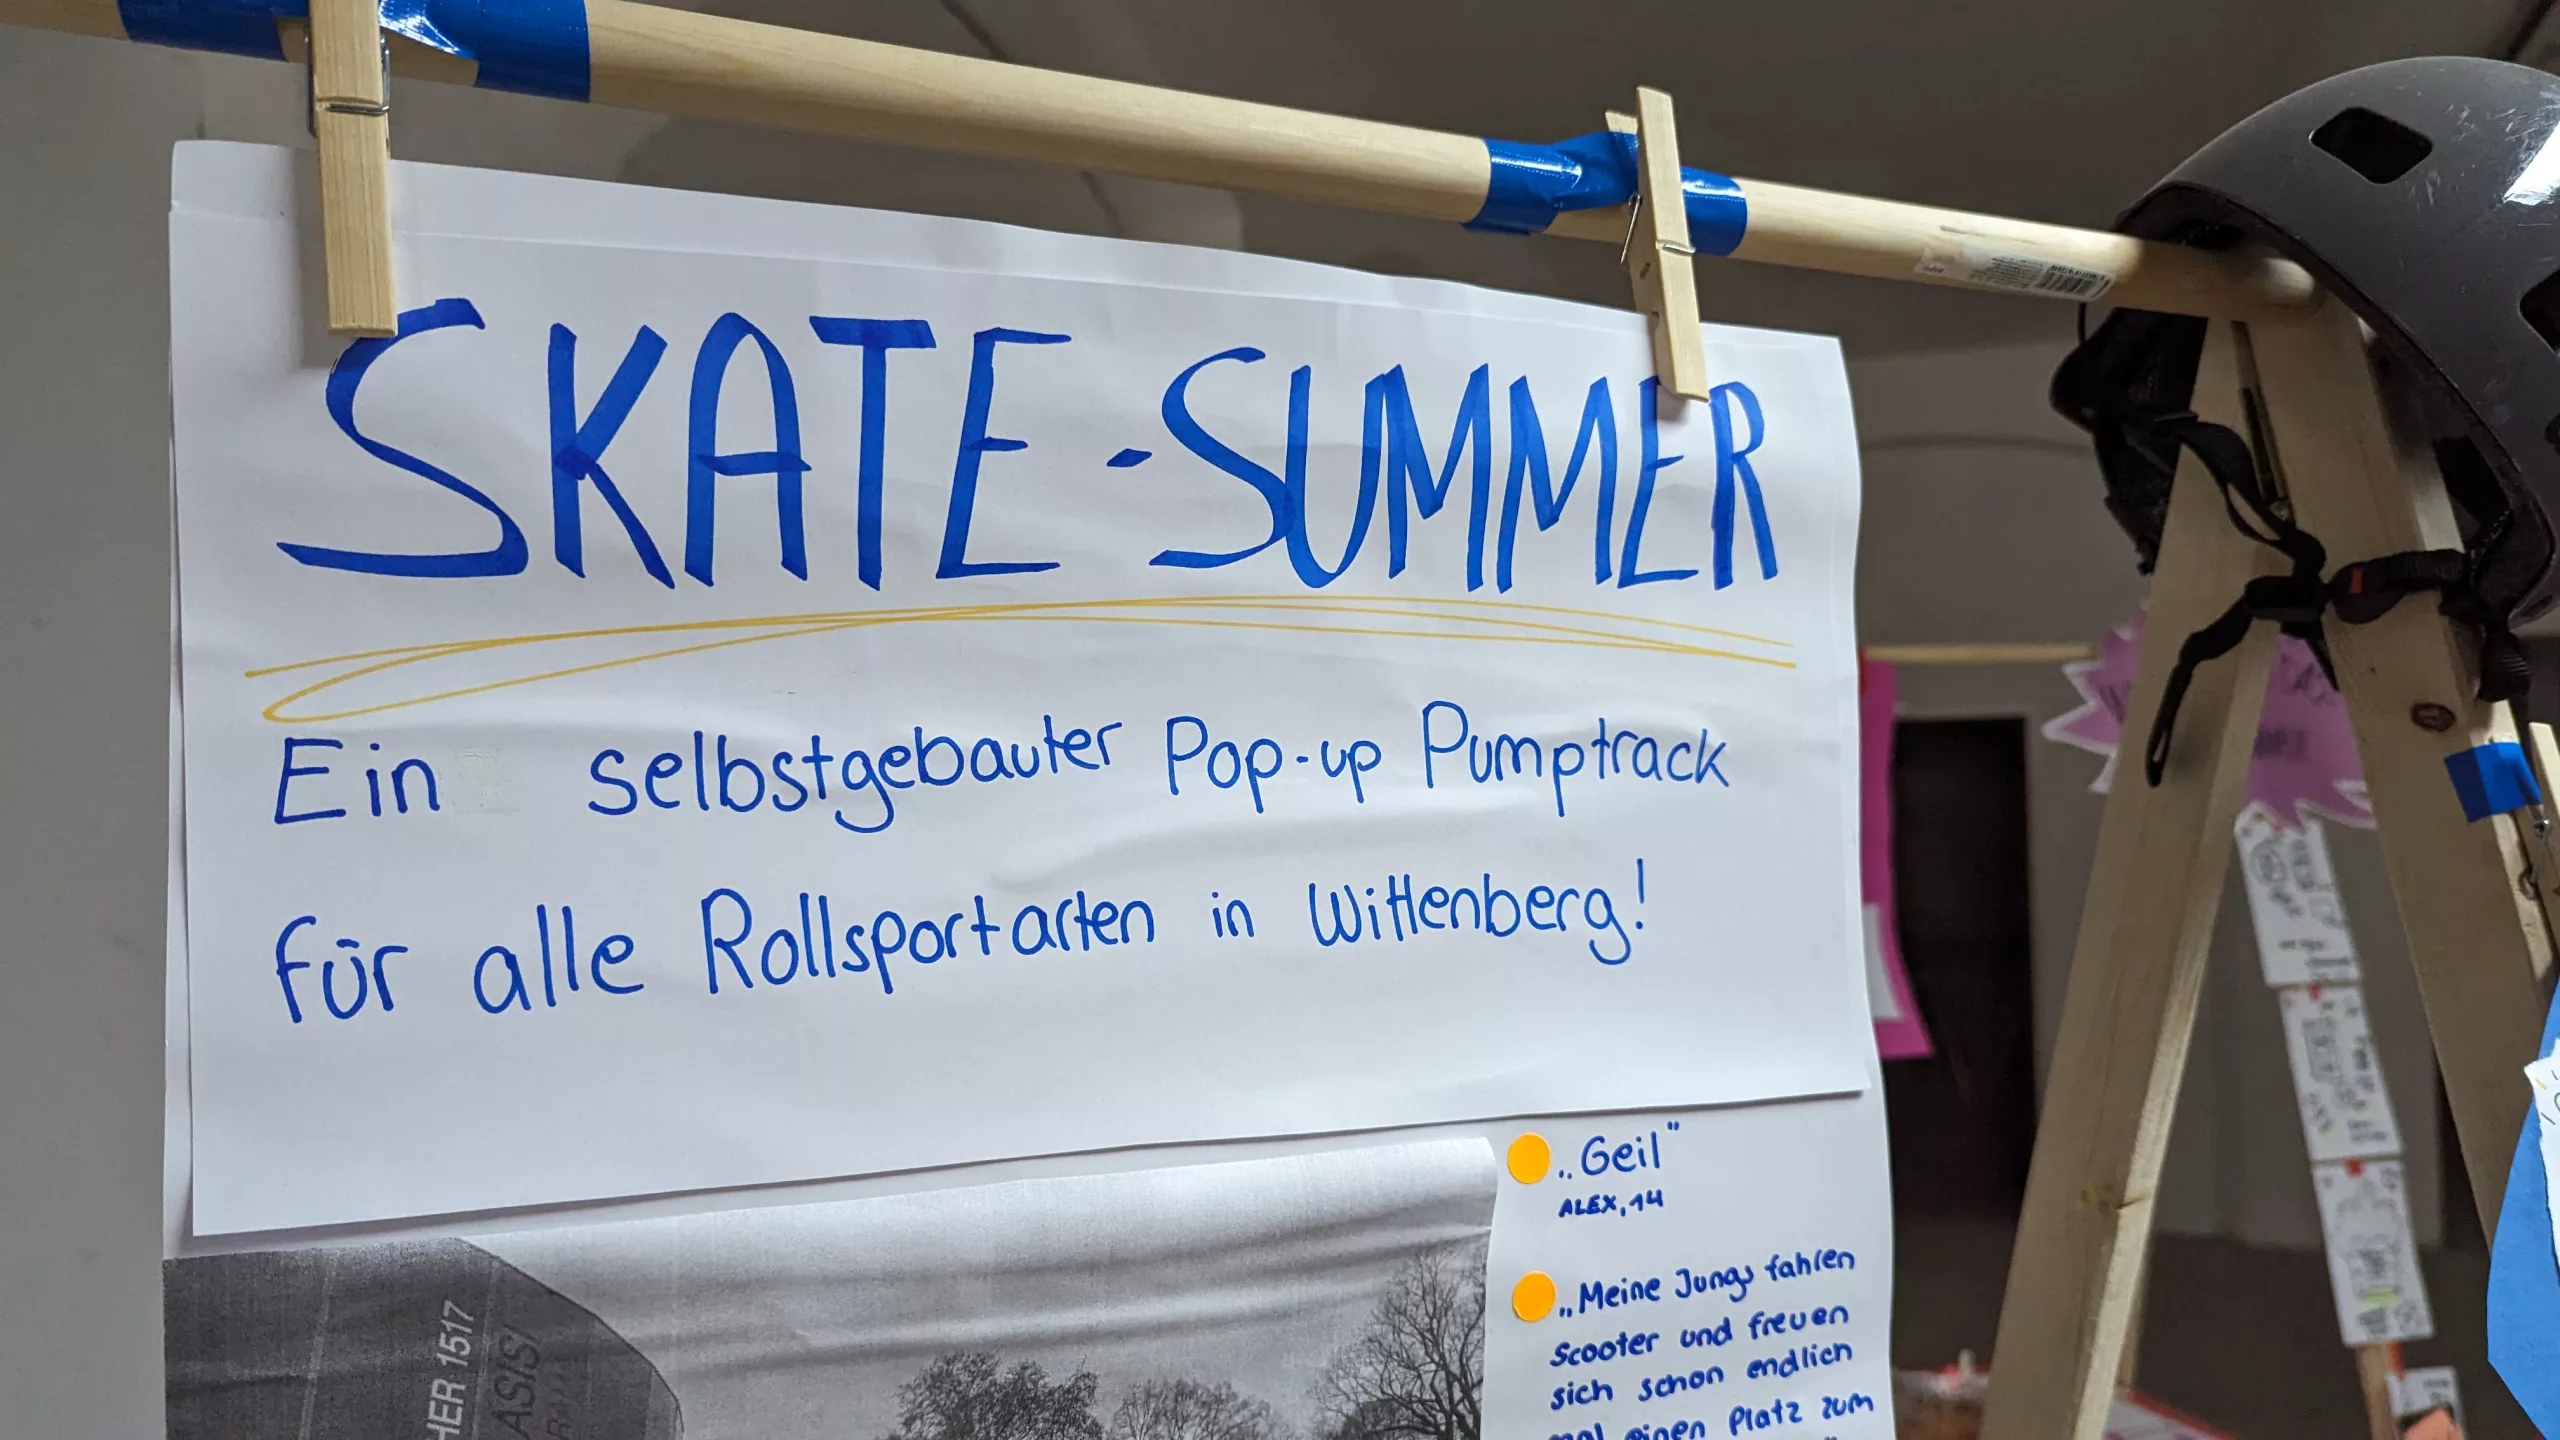 SKATE-SUMMER
Ein selbstgebauter Pop-up Pumptrack
für alle Rollsportarten in Wittenberg!
„Geil"
ALEX, 14
„Meine Jungs fahren
Scooter und freuen
sich schon endlich
mal einen Platz zum
HER 1517
ASISI